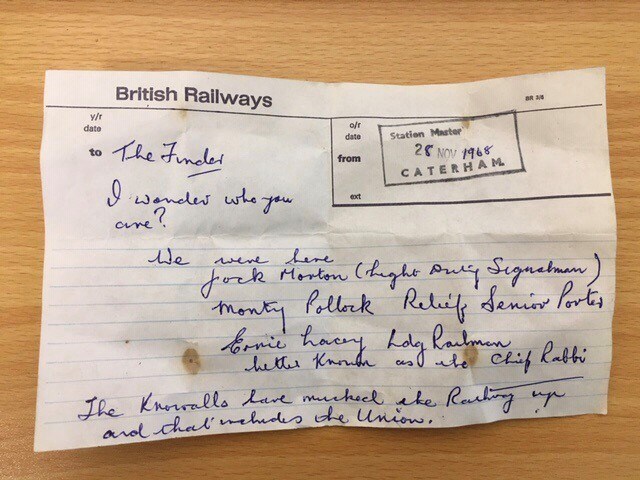 British Railways
BR 3/6
y/r
date
o/r
date
to The Finder
from
Station Master
28 NOV 1968
CATERHAM
ext
I wonder who you
are?
We were here
Jock Morton (Light Duty Signalman)
Monty Pollock Relief Senior Porter
Ernie Lacey Ldg Railman
better Known as the Chief Rabbi
The Knowalls have mucked the Railway up
and that includes the Union.